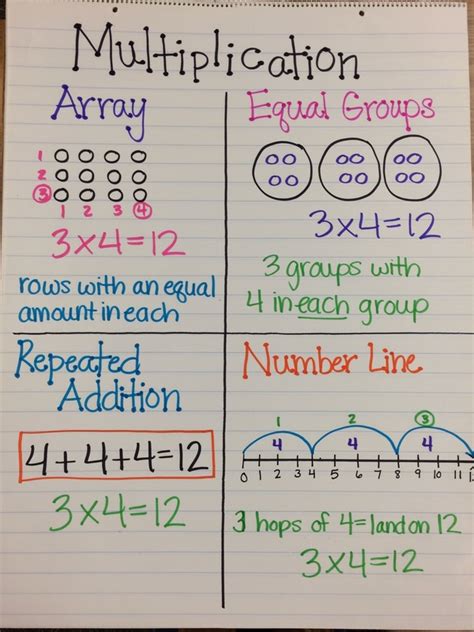 Multiplication
Array
1
2
3
1 2 3 4
3x4=12
rows with an equal
amount in each
Equal Groups
3x4=12
3 groups with
4 in each group
Repeated
Addition
4+4+4=12
3x4=12
Number Line
1 2 3
4 4 4
0 1 2 3 4 5 6 7 8 9 10 11
3 hops of 4=land on 12
3x4=12